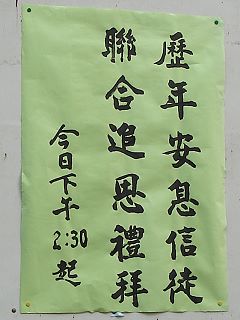 歷年安息信徒
聯合追恩禮拜
今日下午2:30起